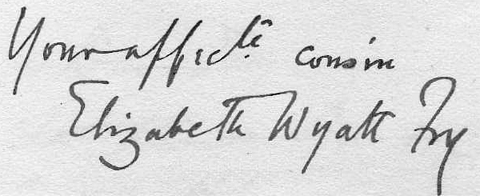 Your affecte cousin
Elizabeth Wyatt Fry